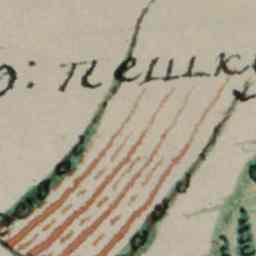 о: пешк